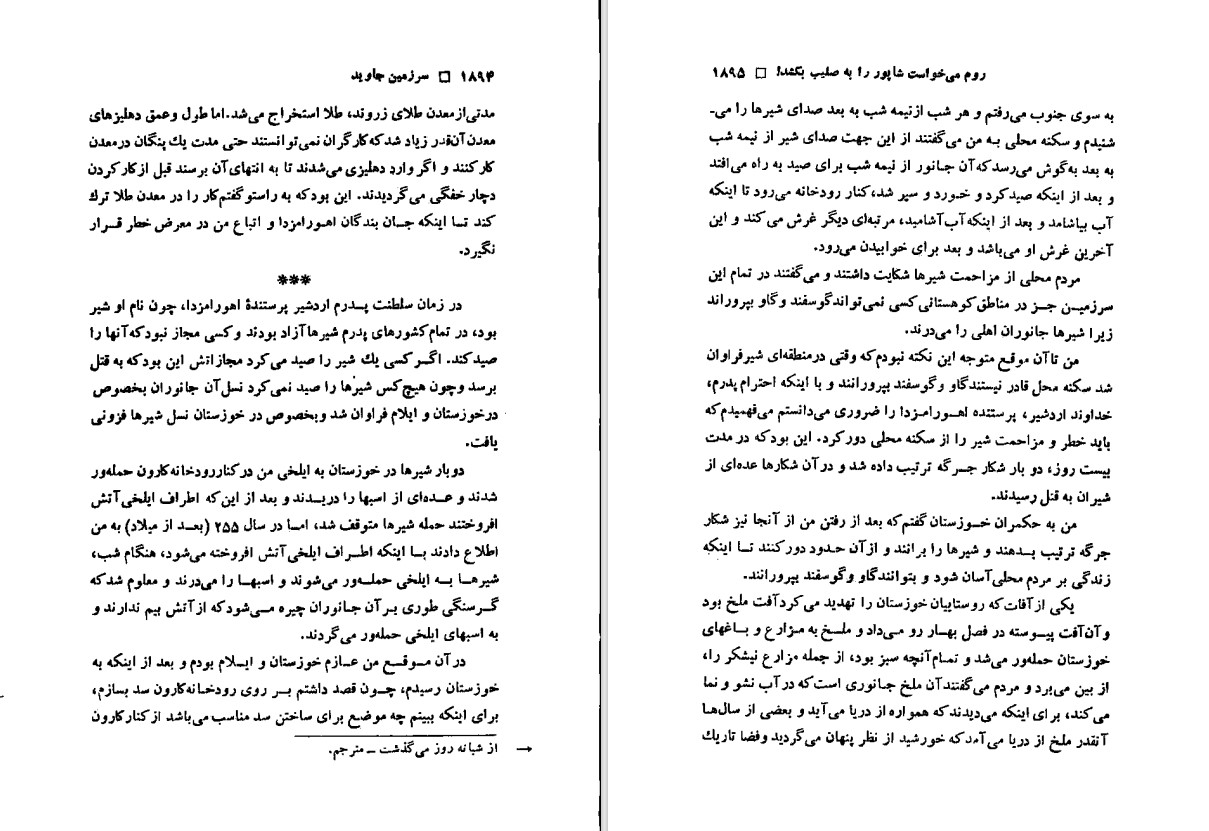 ۱۸۹۴ □ سرزمین جاوید
مدتی از معدن طلای زروند، طلا استخراج می‌شد. اما طول و عمق دهلیزهای
معدن آن‌قدر زیاد شد که کارگران نمی‌توانستند حتی مدت یك پنگان در معدن
کار کنند و اگر وارد دهلیزی می‌شدند تا به انتهای آن برسند قبل از کار کردن
دچار خفگی می‌گردیدند. این بود که به راستو گفتم کار را در معدن طلا ترك
کند تا اینکه جان بندگان اهورامزدا و اتباع من در معرض خطر قرار
نگیرد.
***
در زمان سلطنت پدرم اردشیر پرستندهٔ اهورامزدا، چون نام او شیر
بود، در تمام کشورهای پدرم شیرها آزاد بودند و کسی مجاز نبود که آنها را
صید کند. اگر کسی یك شیر را صید می‌کرد مجازاتش این بود که به قتل
برسد و چون هیچ کس شیرها را صید نمی‌کرد نسل آن جانوران بخصوص
در خوزستان و ایلام فراوان شد و بخصوص در خوزستان نسل شیرها فزونی
یافت.
دو بار شیرها در خوزستان به ایلخی من در کنار رودخانه کارون حمله‌ور
شدند و عده‌ای از اسبها را دریدند و بعد از این که اطراف ایلخی آتش
افروختند حمله شیرها متوقف شد، اما در سال ۲۵۵ (بعد از میلاد) به من
اطلاع دادند با اینکه اطراف ایلخی آتش افروخته می‌شود، هنگام شب،
شیرها به ایلخی حمله‌ور می‌شوند و اسبها را می‌درند و معلوم شد که
گرسنگی طوری بر آن جانوران چیره می‌شود که از آتش بیم ندارند و
به اسبهای ایلخی حمله‌ور می‌گردند.
در آن موقع من عازم خوزستان و ایلام بودم و بعد از اینکه به
خوزستان رسیدم، چون قصد داشتم بر روی رودخانه کارون سد بسازم،
برای اینکه ببینم چه موضع برای ساختن سد مناسب می‌باشد از کنار کارون
← از شبانه روز می‌گذشت – مترجم.
روم می‌خواست شاپور را به صلیب بکشد! □ ۱۸۹۵
به سوی جنوب می‌رفتم و هر شب از نیمه شب به بعد صدای شیرها را می‌ـ
شنیدم و سکنه محلی به من می‌گفتند از این جهت صدای شیر از نیمه شب
به بعد به گوش می‌رسد که آن جانور از نیمه شب برای صید به راه می‌افتد
و بعد از اینکه صید کرد و خورد و سیر شد، کنار رودخانه می‌رود تا اینکه
آب بیاشامد و بعد از اینکه آب آشامید، مرتبه‌ای دیگر غرش می‌کند و این
آخرین غرش او می‌باشد و بعد برای خوابیدن می‌رود.
مردم محلی از مزاحمت شیرها شکایت داشتند و می‌گفتند در تمام این
سرزمین جز در مناطق کوهستانی کسی نمی‌تواند گوسفند و گاو بپروراند
زیرا شیرها جانوران اهلی را می‌درند.
من تا آن موقع متوجه این نکته نبودم که وقتی در منطقه‌ای شیر فراوان
شد سکنه محل قادر نیستند گاو و گوسفند بپرورانند و با اینکه احترام پدرم،
خداوند اردشیر، پرستنده اهورامزدا را ضروری می‌دانستم می‌فهمیدم که
باید خطر و مزاحمت شیر را از سکنه محلی دور کرد. این بود که در مدت
بیست روز، دو بار شکار جرگه ترتیب داده شد و در آن شکارها عده‌ای از
شیران به قتل رسیدند.
من به حکمران خوزستان گفتم که بعد از رفتن من از آنجا نیز شکار
جرگه ترتیب بدهند و شیرها را برانند و از آن حدود دور کنند تا اینکه
زندگی بر مردم محلی آسان شود و بتوانند گاو و گوسفند بپرورانند.
یکی از آفات که روستاییان خوزستان را تهدید می‌کرد آفت ملخ بود
و آن آفت پیوسته در فصل بهار رو می‌داد و ملخ به مزارع و باغهای
خوزستان حمله‌ور می‌شد و تمام آنچه سبز بود، از جمله مزارع نیشکر را،
از بین می‌برد و مردم می‌گفتند آن ملخ جانوری است که در آب نشو و نما
می‌کند، برای اینکه می‌دیدند که همواره از دریا می‌آید و بعضی از سال‌ها
آنقدر ملخ از دریا می‌آمد که خورشید از نظر پنهان می‌گردید و فضا تاریك